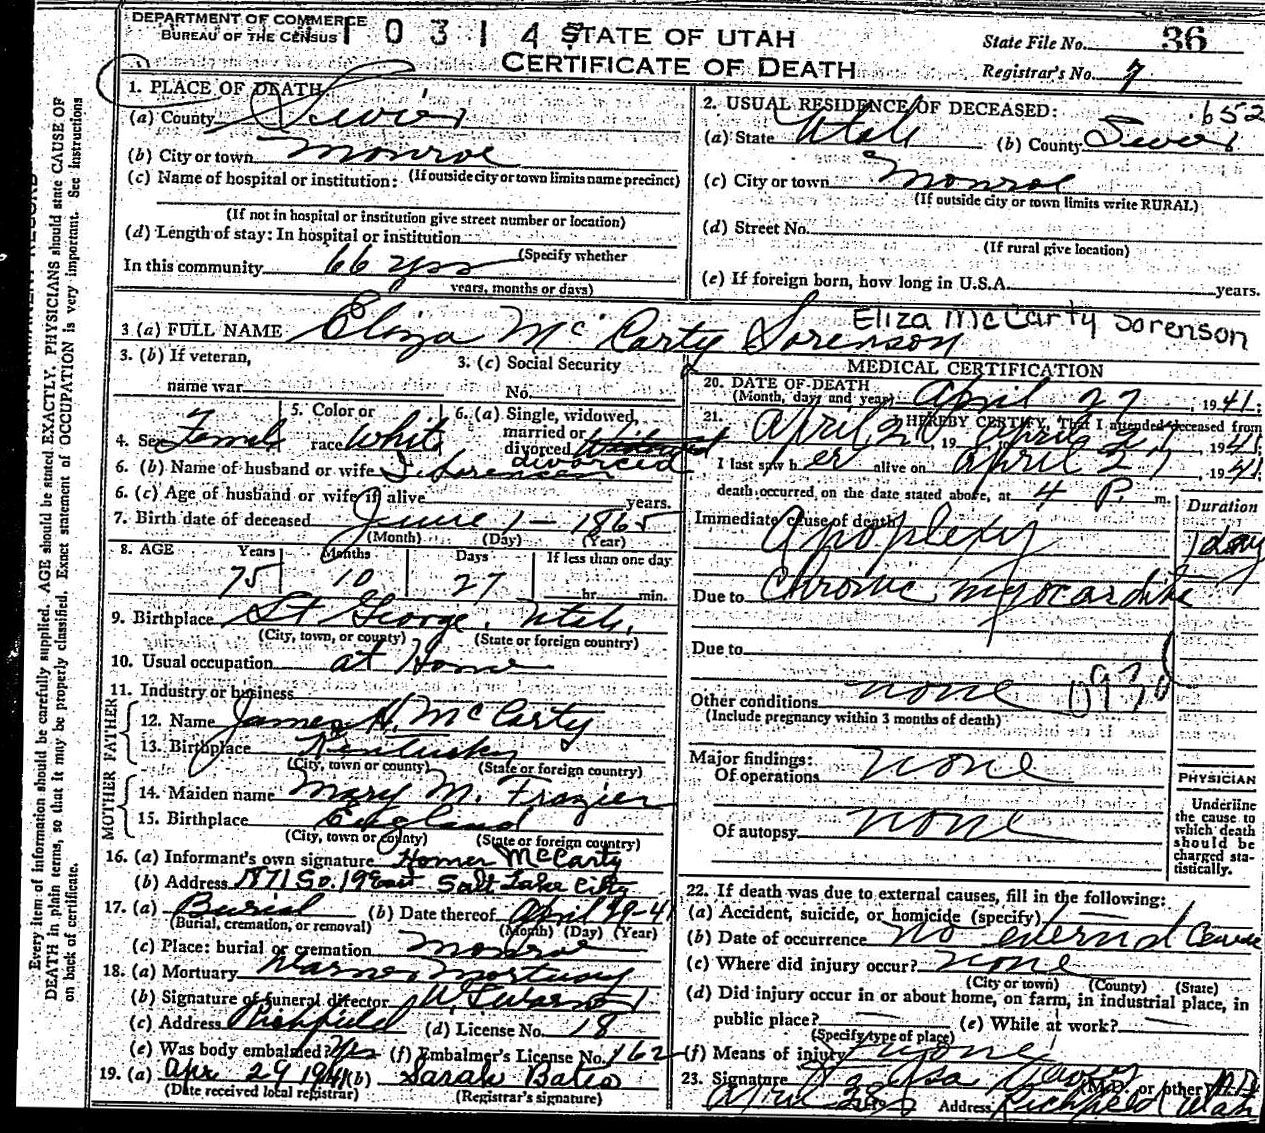 DEPARTMENT OF COMMERCE
BUREAU OF THE CENSUS
STATE OF UTAH
CERTIFICATE OF DEATH
State File No. 36
Registrar's No. 7
1. PLACE OF DEATH
(a) County Sevier
(b) City or town Monroe
(c) Name of hospital or institution: (If outside city or town limits name precinct)
(If not in hospital or institution give street number or location)
(d) Length of stay: In hospital or institution
(Specify whether
In this community 66 yrs
years, months or days)
2. USUAL RESIDENCE OF DECEASED: 652
(a) State Utah (b) County Sevier
(c) City or town Monroe
(If outside city or town limits write RURAL)
(d) Street No.
(If rural give location)
(e) If foreign born, how long in U.S.A. years.
3 (a) FULL NAME Eliza McCarty Sorenson
Eliza McCarty Sorenson
3. (b) If veteran,
name war
3. (c) Social Security
No.
4. Sex Female
5. Color or
race White
6. (a) Single, widowed,
married or
divorced divorced
6. (b) Name of husband or wife Sorenson
6. (c) Age of husband or wife if alive years.
7. Birth date of deceased June 1 - 1865
(Month) (Day) (Year)
8. AGE Years Months Days If less than one day
75 10 27 hr. min.
9. Birthplace St George, Utah,
(City, town, or county) (State or foreign country)
10. Usual occupation at Home
11. Industry or business
FATHER
12. Name James H. McCarty
13. Birthplace Kentucky
(City, town or county) (State or foreign country)
MOTHER
14. Maiden name Mary M. Frazier
15. Birthplace England
(City, town or county) (State or foreign country)
16. (a) Informant's own signature Homer McCarty
(b) Address 1871 So. 19 East Salt Lake City
17. (a) Burial (b) Date thereof April 29-41
(Burial, cremation, or removal) (Month) (Day) (Year)
(c) Place: burial or cremation Monroe
18. (a) Mortuary Warner Mortuary
(b) Signature of funeral director
(c) Address Richfield (d) License No. 18
(e) Was body embalmed? Yes (f) Embalmer's License No. 162
19. (a) Apr. 29 1941 (b) Sarah Bates
(Date received local registrar) (Registrar's signature)
MEDICAL CERTIFICATION
20. DATE OF DEATH
(Month, day, and year) April 27, 1941.
21. I HEREBY CERTIFY, That I attended deceased from
April 26 19 to April 27 1941
I last saw her alive on April 27, 1941
death occurred on the date stated above, at 4 P. m.
Duration
Immediate cause of death
Apoplexy 1 day
Due to Chronic myocarditis
Due to
Other conditions none
(Include pregnancy within 3 months of death)
Major findings:
Of operations none
Of autopsy none
PHYSICIAN
Underline
the cause to
which death
should be
charged sta-
tistically.
22. If death was due to external causes, fill in the following:
(a) Accident, suicide, or homicide (specify)
(b) Date of occurrence No external Cause
(c) Where did injury occur? none
(City or town) (County) (State)
(d) Did injury occur in or about home, on farm, in industrial place, in
public place? (e) While at work?
(Specify type of place)
(f) Means of injury none
23. Signature (M.D. or other) M.D.
April 28 Address Richfield Utah
Every item of information should be carefully supplied. AGE should be stated EXACTLY. PHYSICIANS should state CAUSE OF
DEATH in plain terms, so that it may be properly classified. Exact statement of OCCUPATION is very important. See instructions
on back of certificate.